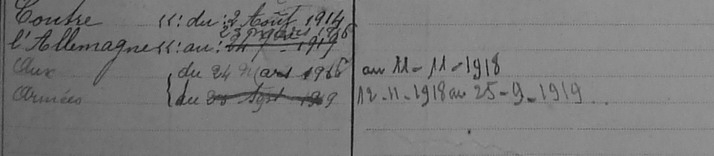 Contre «: du: 2 Août 1914
23 mars 1916
l'Allemagne «: au: 1919
Aux du 24 Mars 1916 au 11-11-1918
Armées du 23 Sept 1919 12-11-1918 au 25-9-1919